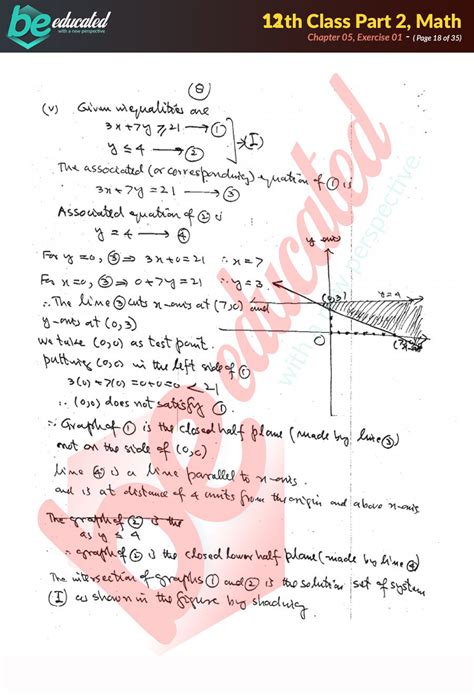 be educated
with a new perspective
12th Class Part 2, Math
Chapter 05, Exercise 01 - ( Page 18 of 35)
⑧
(v) Given inequalities are
3x+7y ≥ 21 → ①
y ≤ 4 → ②
→ (I)
The associated (or corresponding) equation of ① is
3x+7y = 21 → ③
Associated equation of ② is
y = 4 → ④
For y = 0, ③ ⇒ 3x+0 = 21 ∴ x = 7
For x = 0, ③ ⇒ 0+7y = 21 ∴ y = 3
∴ The line ③ cuts x-axis at (7,0) and
y-axis at (0,3)
we take (0,0) as test point.
putting (0,0) in the left side of ①
3(0)+7(0) = 0+0 = 0 < 21
∴ (0,0) does not satisfy ①
∴ Graph of ① is the closed half plane (made by line ③)
not on the side of (0,0)
line ④ is a line parallel to x-axis
and is at distance of 4 units from the origin and above x-axis
The graph of ② is the
as y ≤ 4
∴ graph of ② is the closed lower half plane (made by line ④)
The intersection of graphs ① and ② is the solution set of system
(I) as shown in the figure by shading.
y-axis
(0,3)
y=4
O
be educated
with a new perspective